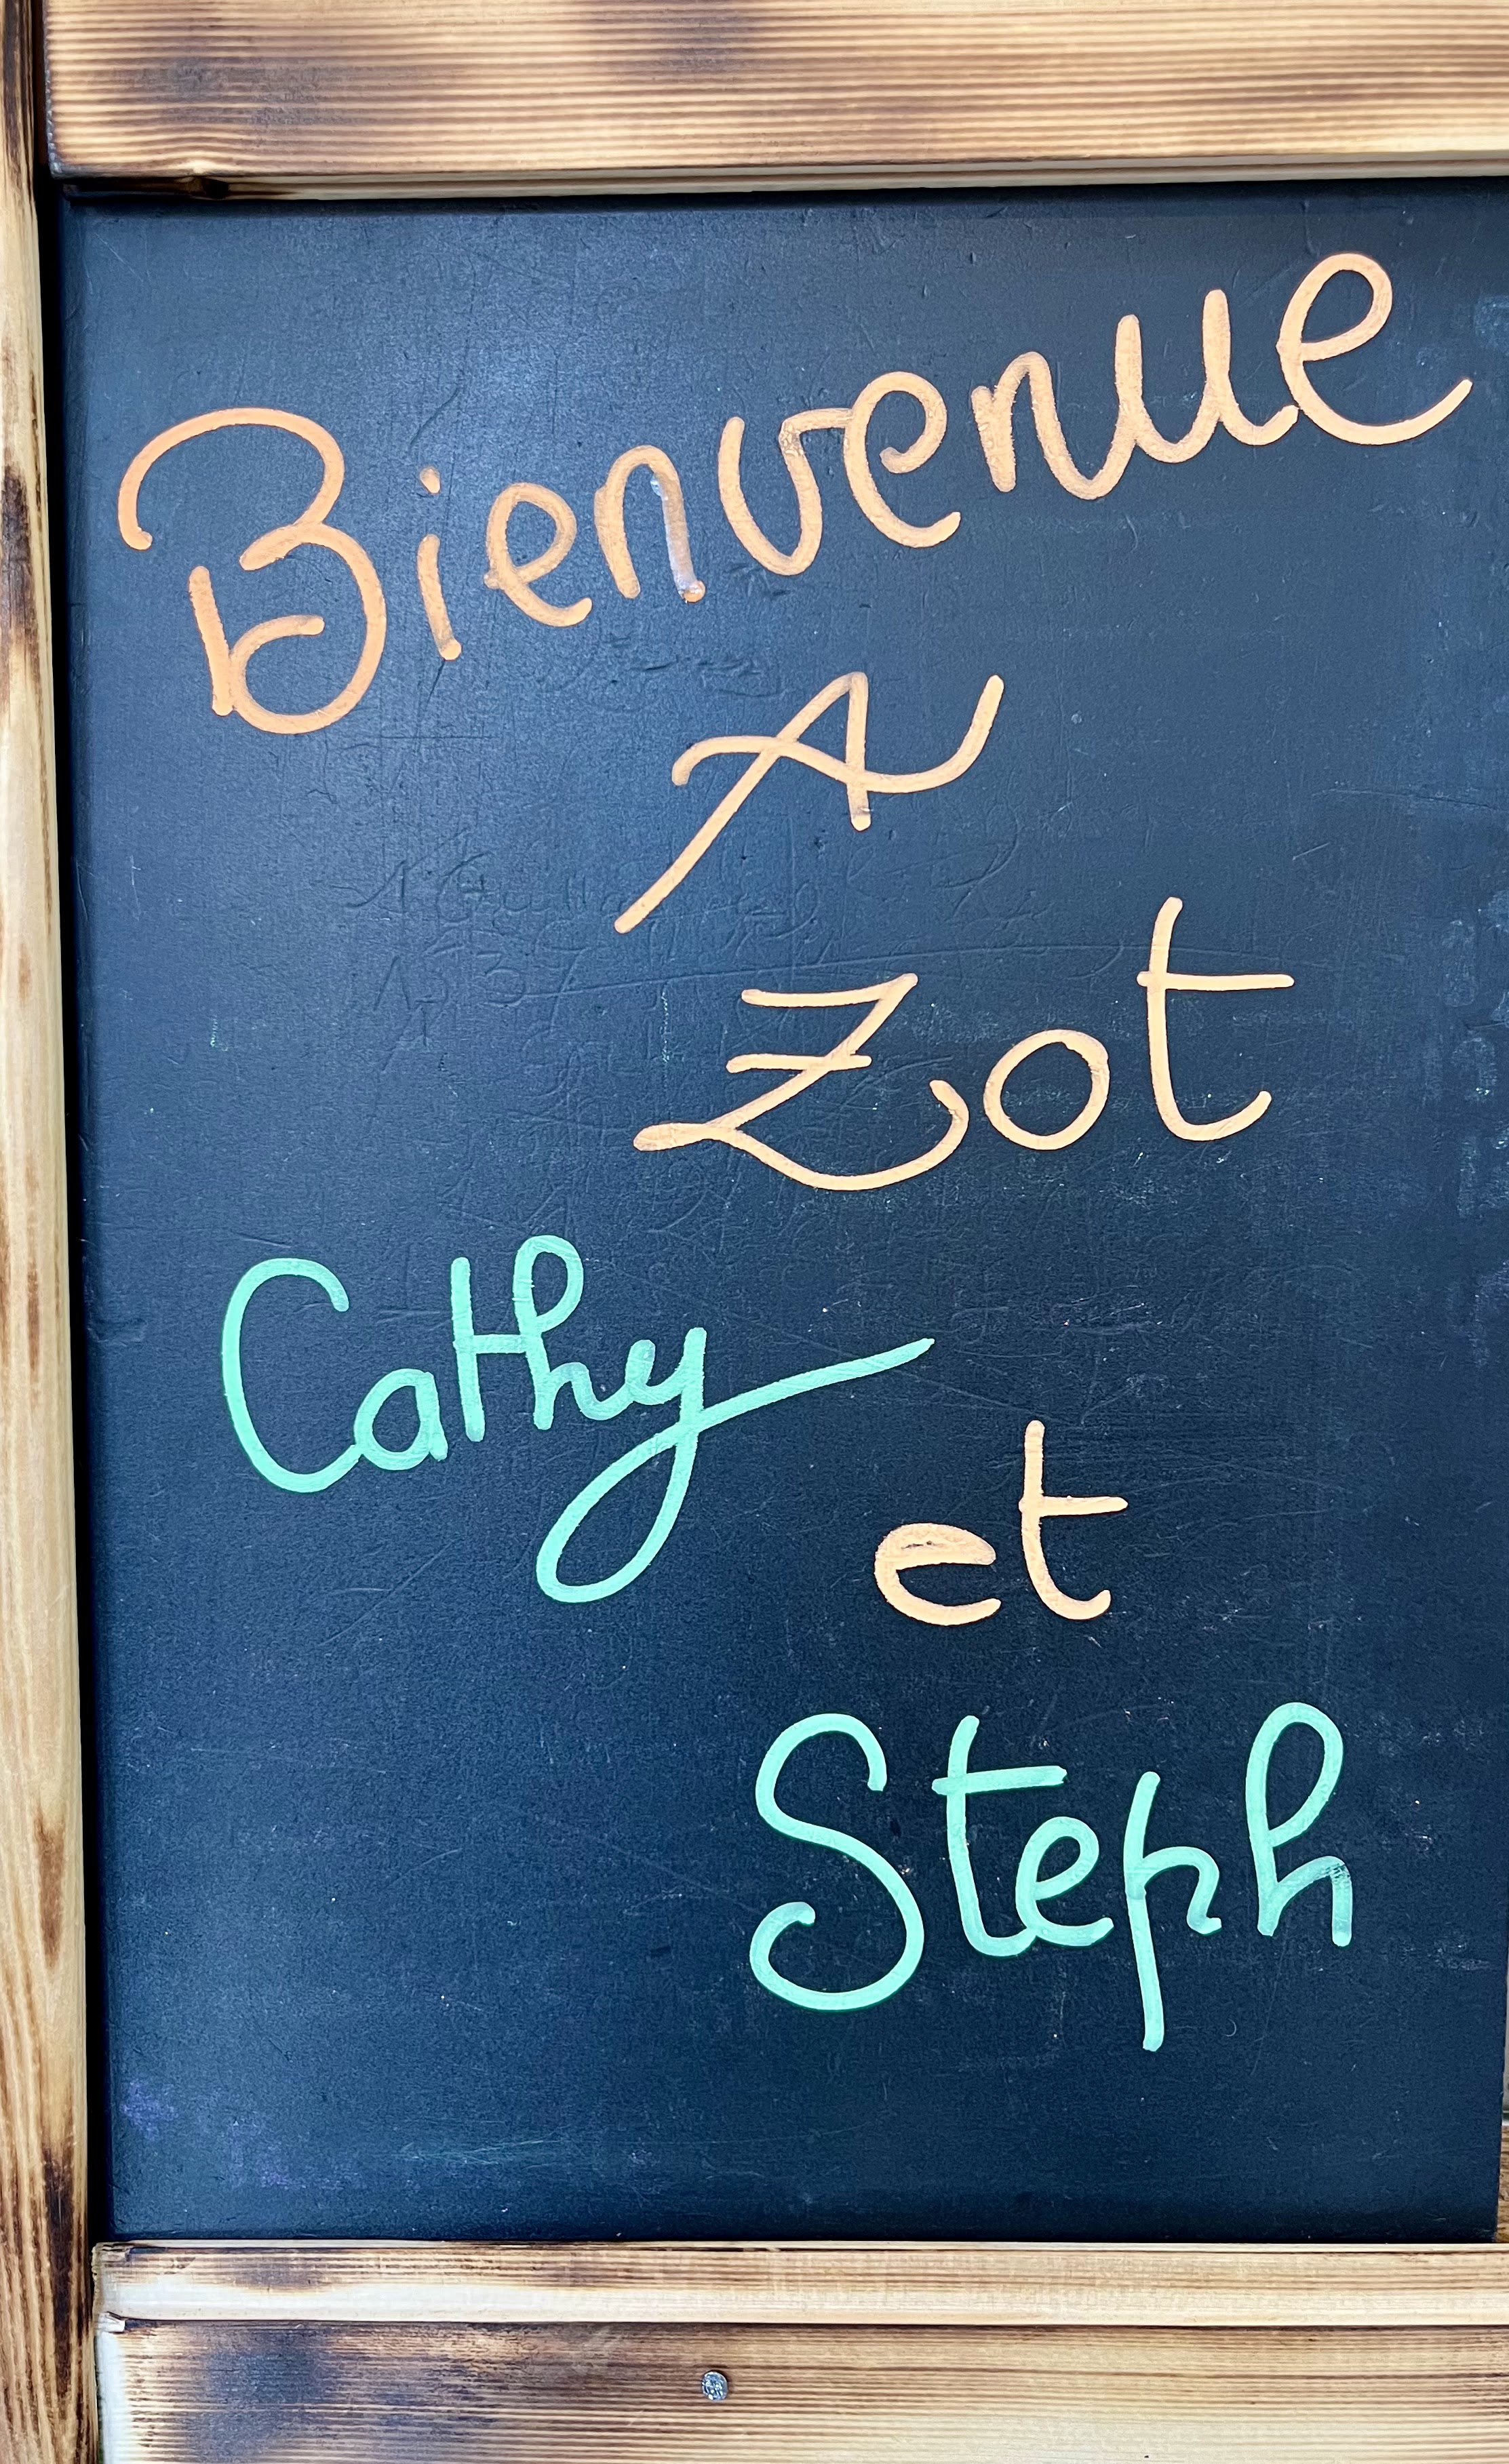 Bienvenue
A
Zot
Cathy
et
Steph